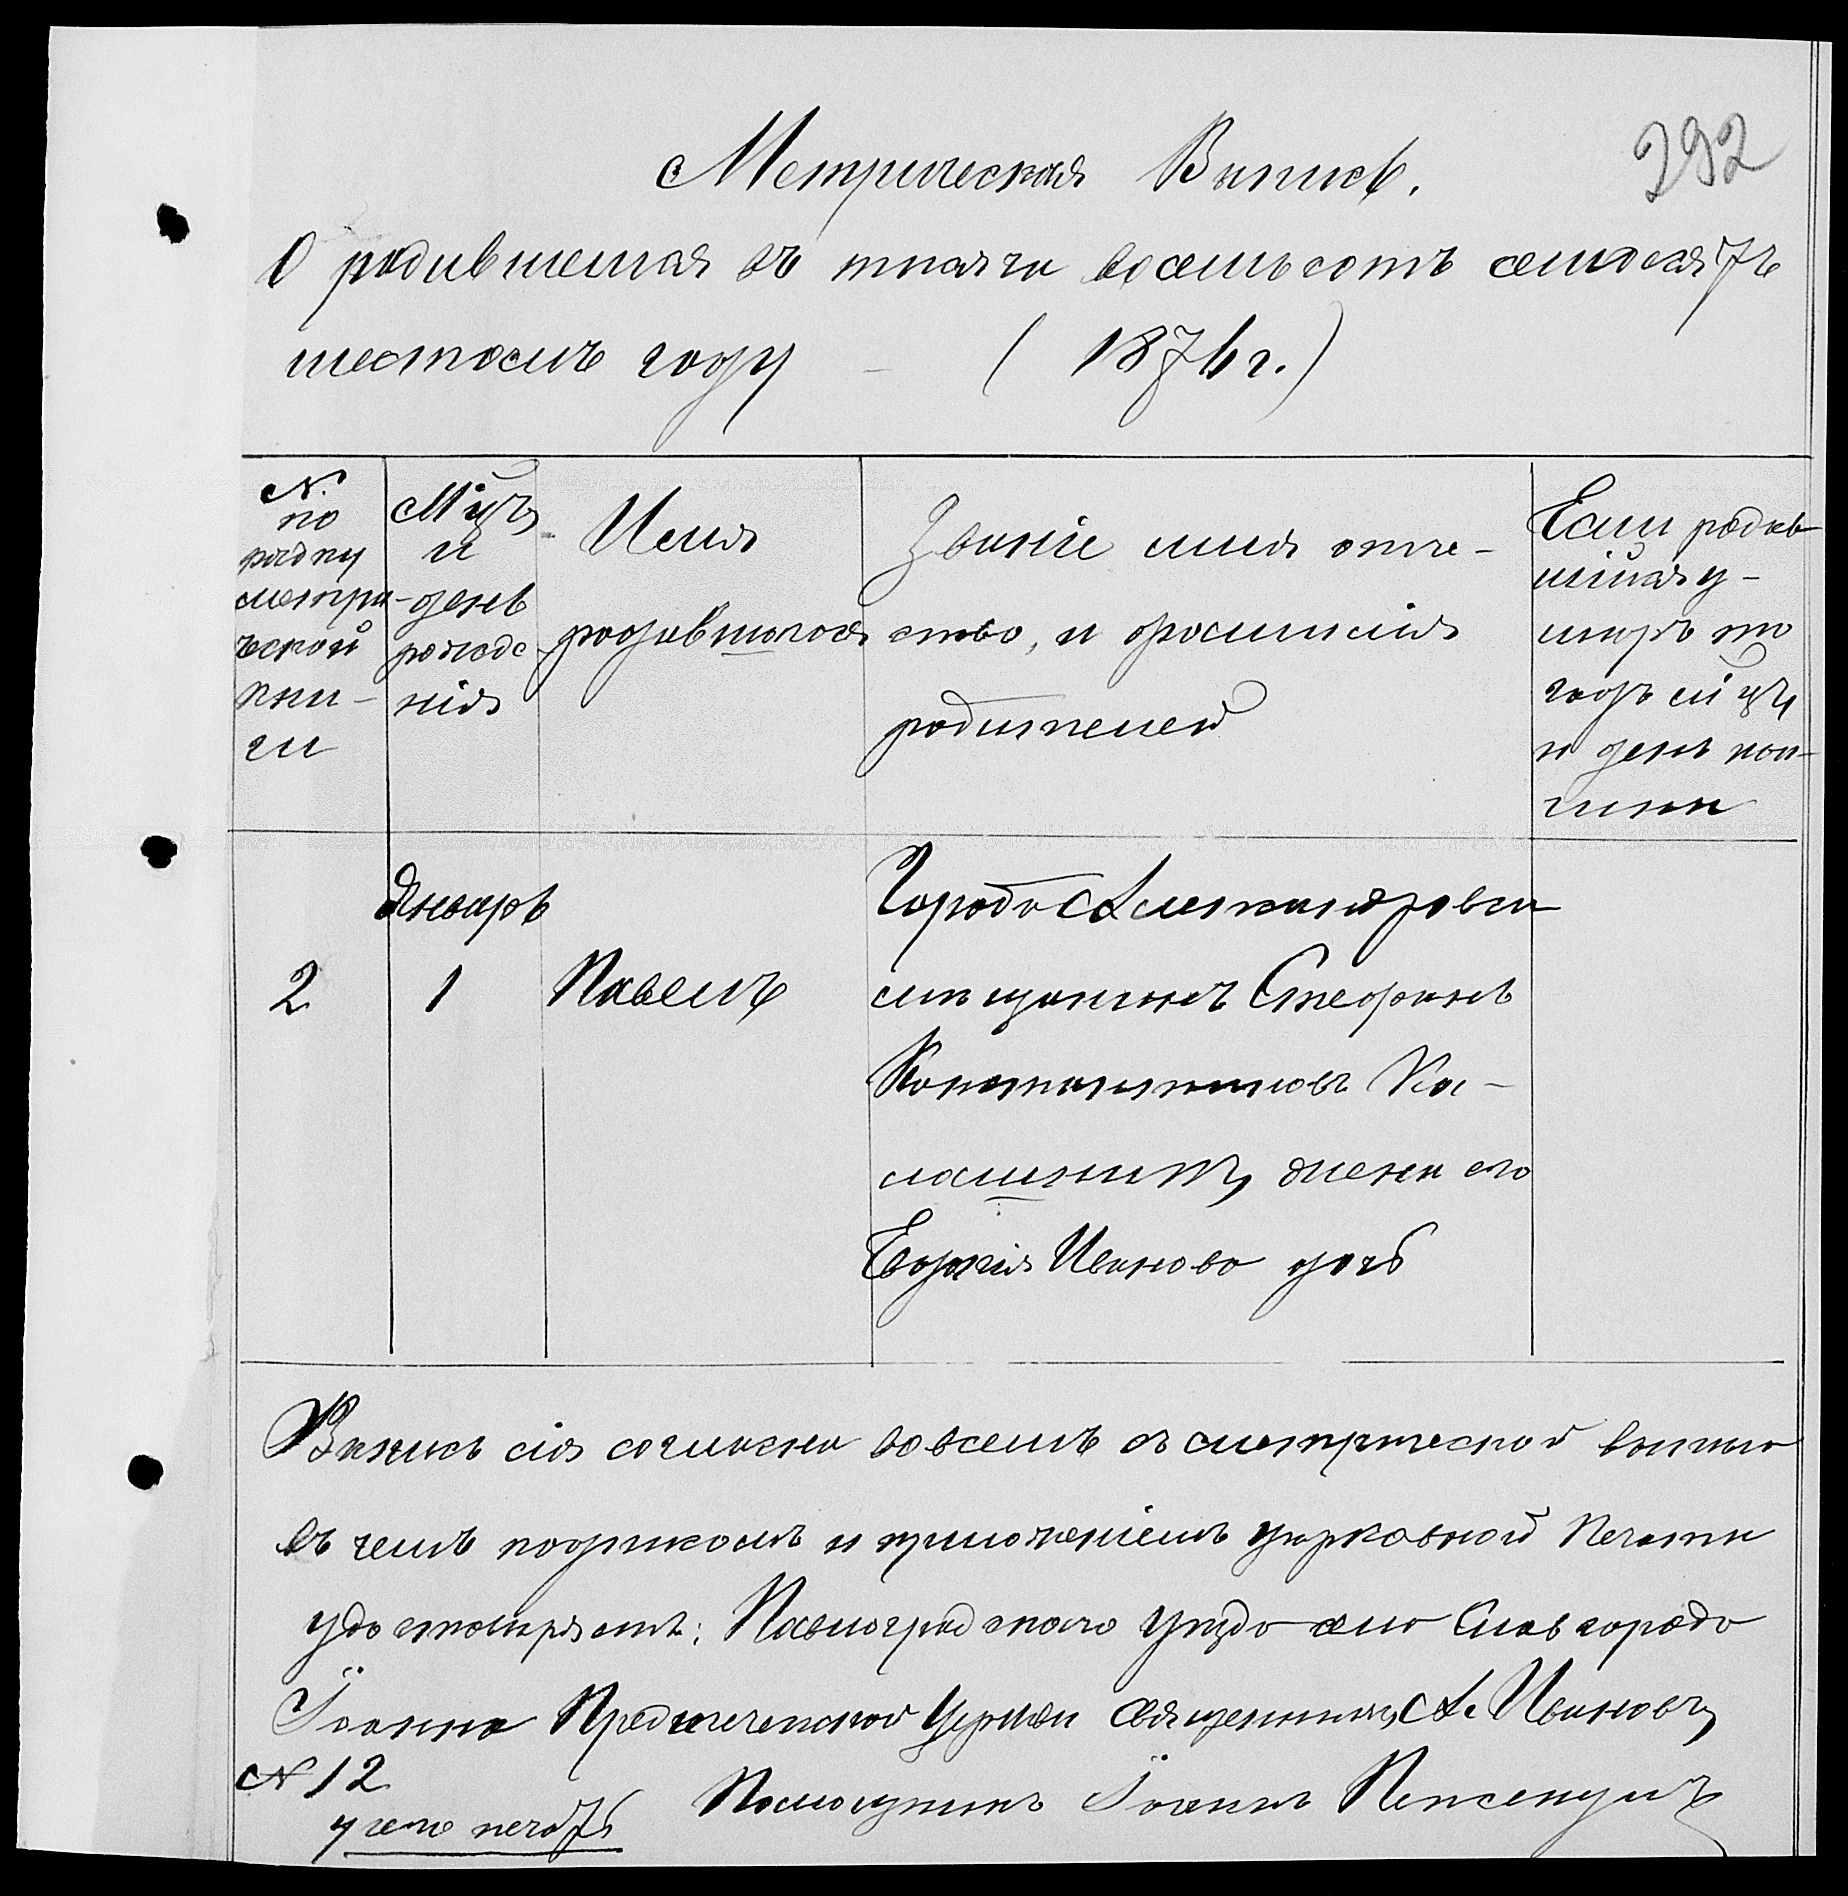 292
Метрическая Выпись.
О родившемся въ тысяча восемьсотъ семьдесятъ
шестомъ году - (1876 г.)
№
по
рядку
метри-
ческой
кни-
ги
Мѣцъ
и
день
рожде
нія
Имя
родившагося
Званіе имя отче-
ство, и фамилія
родителей
Если родив
шійся у-
меръ то
годъ мѣцъ
и день кон-
чины
2
Январь
1
Павелъ
Города Александровска
мѣщанинъ Стефанъ
Константиновъ Ка-
лашникъ, жена его
Евдокія Иванова дочь
Выпись сія согласна во всемъ съ метрической книгою
въ чемъ подписомъ и приложеніемъ церковной печати
удостовѣряетъ: Павлоградскаго уѣзда село Славгорода
Іоанно Предтеченской Церкви священникъ А. Ивановъ
№ 12
у сего печать
Помощникъ Іоаннъ